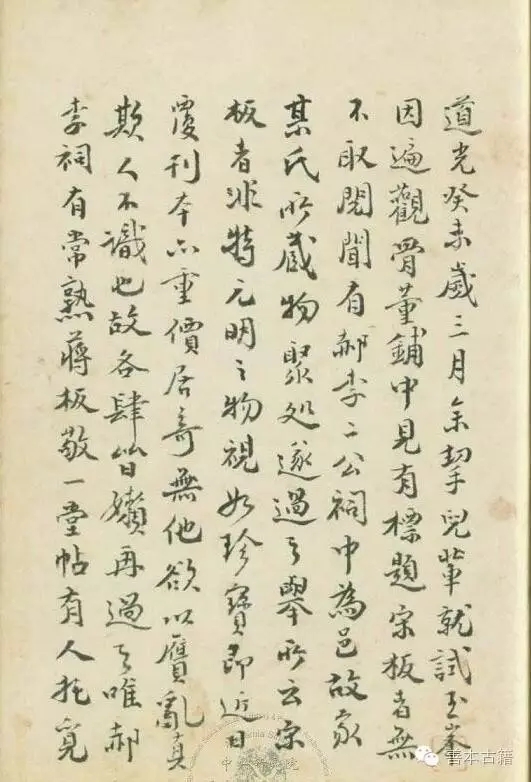 道光癸未歲三月余挈兒輩就試玉峯
因遍觀骨董鋪中見有標題宋板者無
不取閱聞有郝李二公祠中為邑故家
某氏所藏物聚処遂過之舉所云宋
板者非特元明之物視如珍寶即近日
覆刊本亦重價居奇無他欲以贋亂真
欺人不識也故各肆皆嬾再過之唯郝
李祠有常熟蔣板敬一堂帖有人托覓
善本古籍